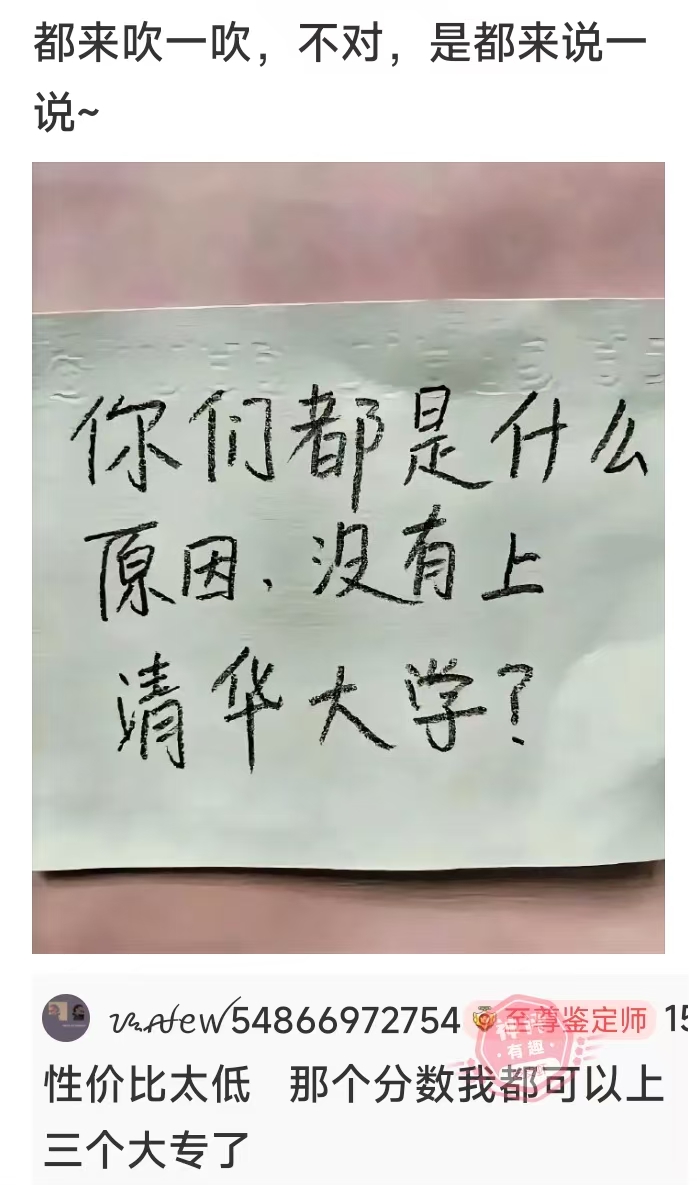 都来吹一吹，不对，是都来说一
说~
你们都是什么
原因、没有上
清华大学？
54866972754 至尊鉴定师 15
有趣
性价比太低 那个分数我都可以上
三个大专了